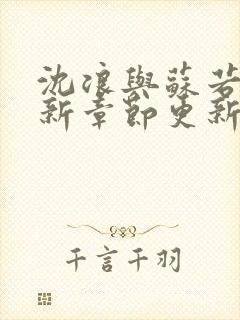 沈浪與蘇若
新章節更新
千言千羽